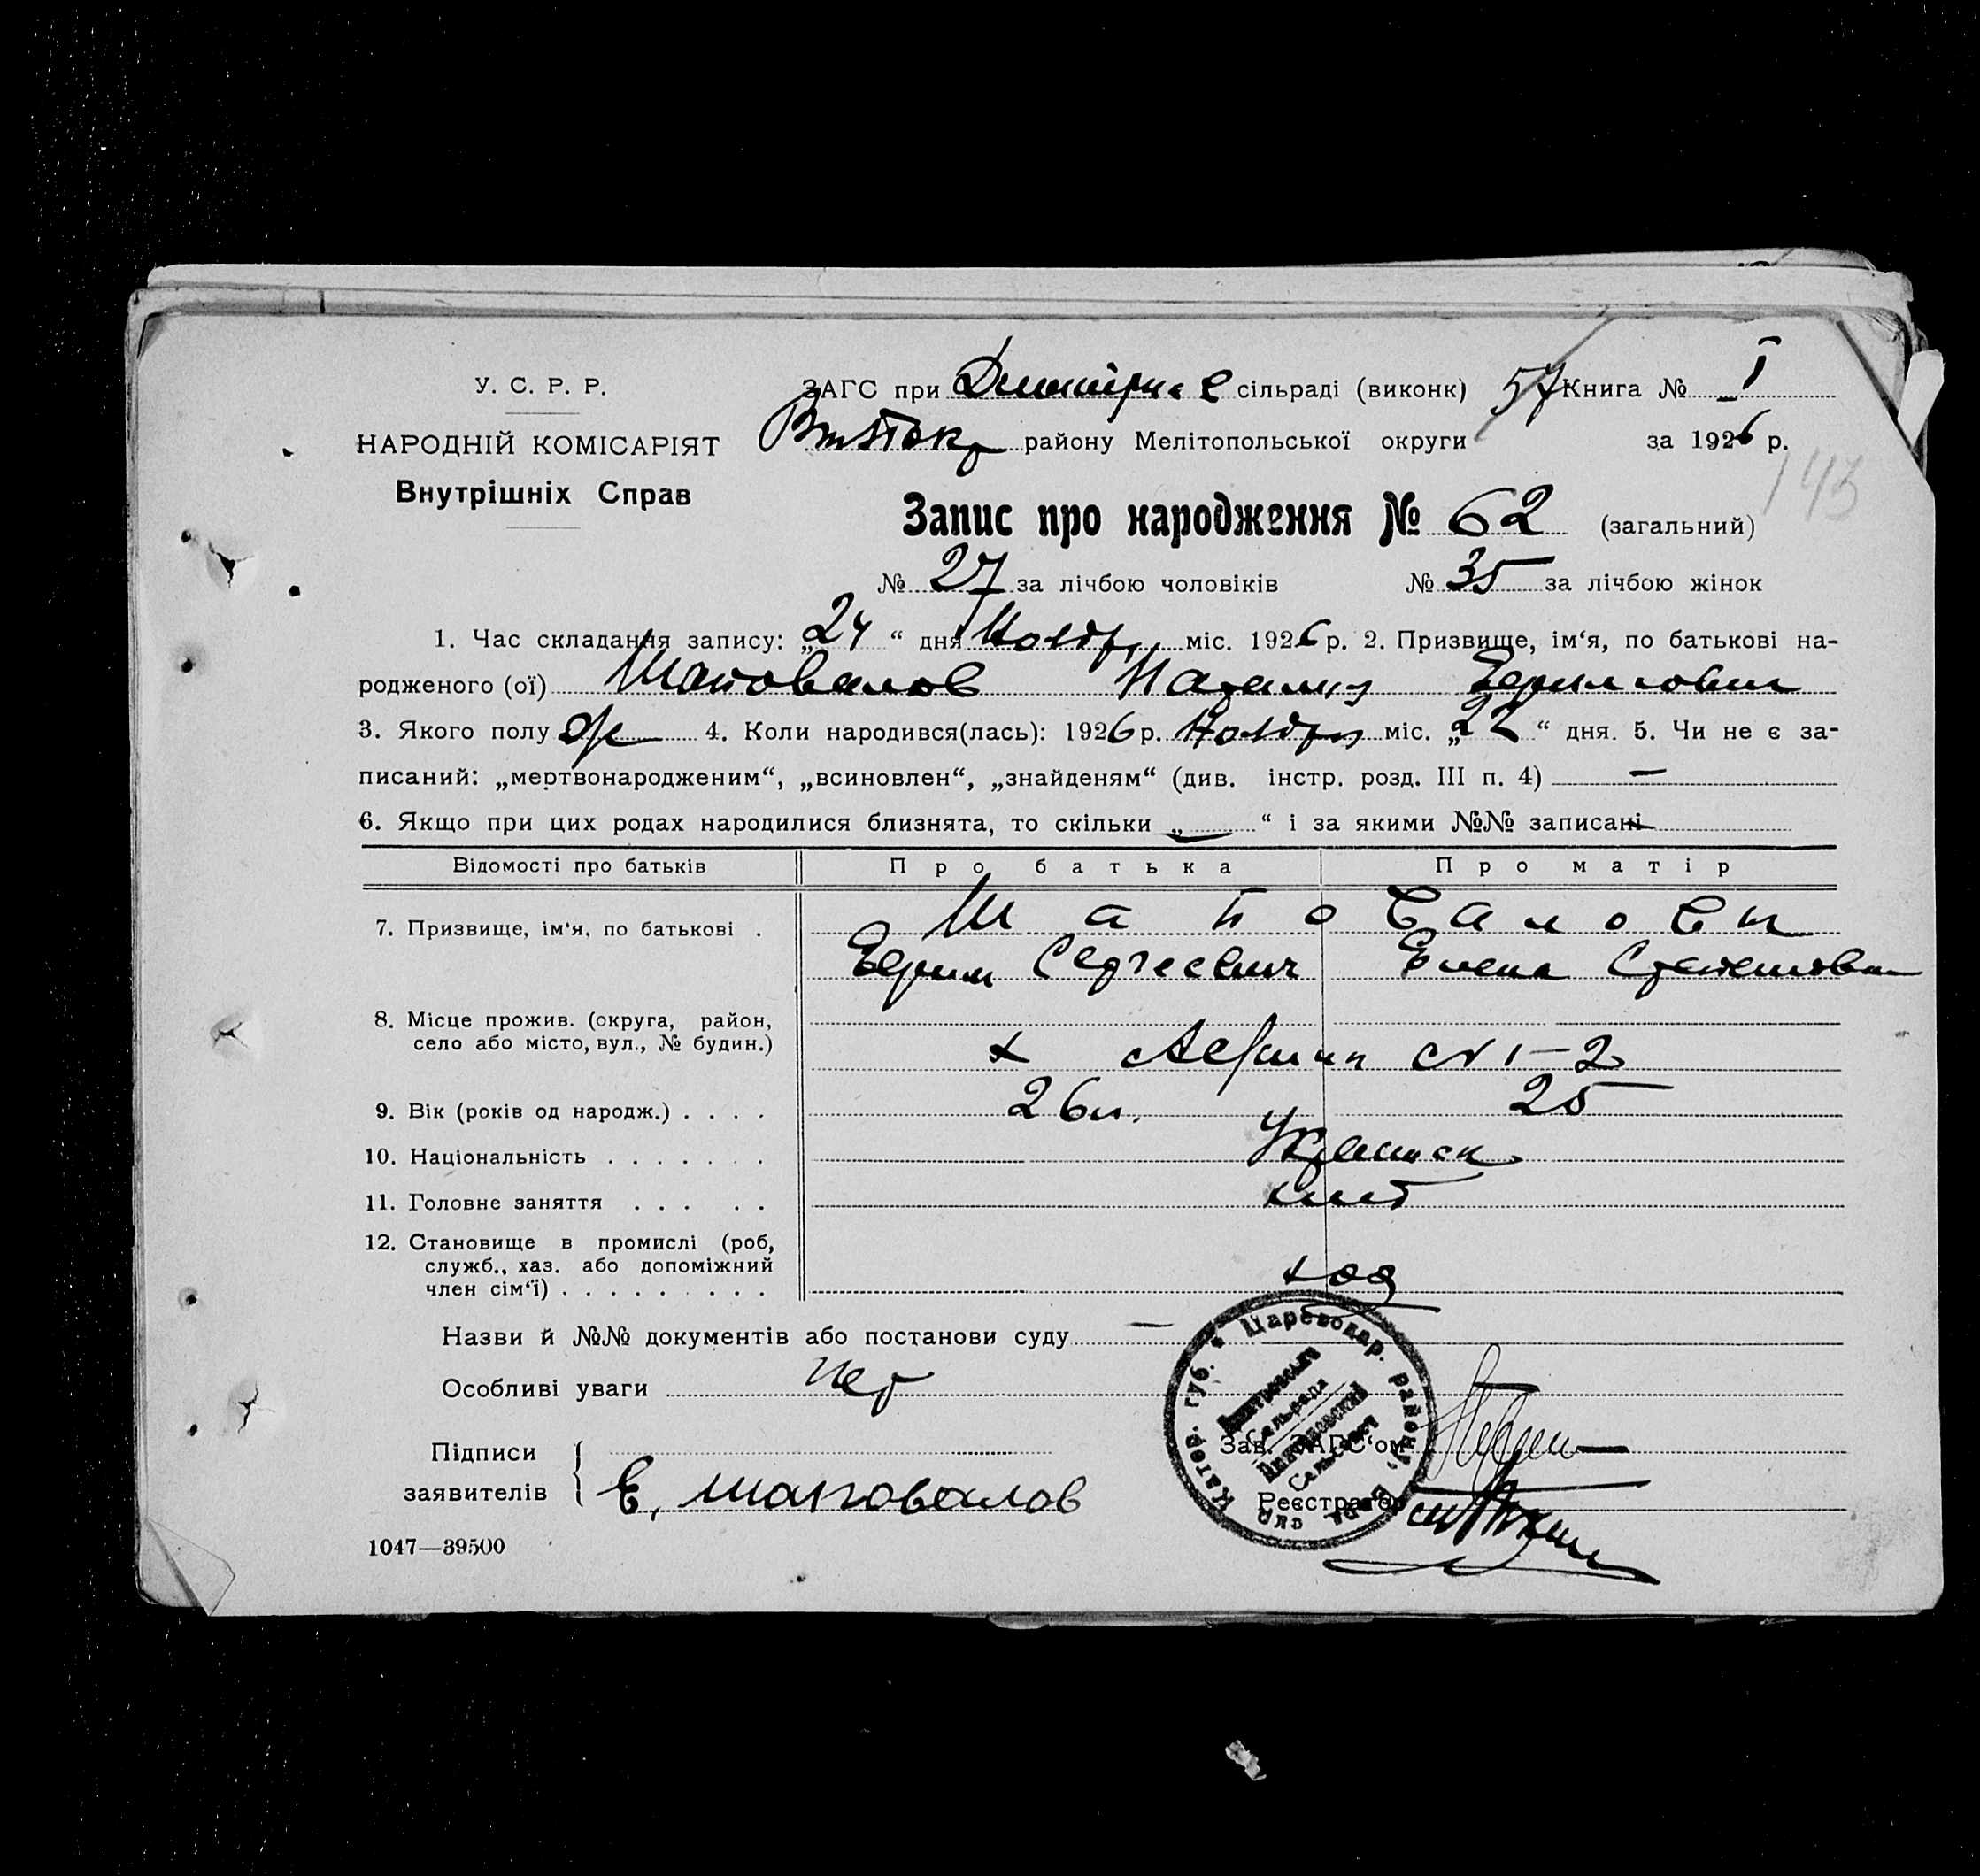 У. С. Р. Р.
НАРОДНІЙ КОМІСАРІЯТ
Внутрішніх Справ
ЗАГС при сільраді (виконк) 57 Книга № I
району Мелітопольської округи за 1926 р.
143
Запис про народження № 62 (загальний)
№ 27 за лічбою чоловіків № 35 за лічбою жінок
1. Час складання запису: „24“ дня Ноября міс. 1926 р. 2. Призвище, ім‘я, по батькові на-
родженого (ої) Шаповалов
3. Якого полу 4. Коли народився(лась): 1926 р. Ноября міс. „22“ дня. 5. Чи не є за-
писаний: „мертвонародженим“, „всиновлен“, „знайденям“ (див. інстр. розд. III п. 4) —
6. Якщо при цих родах народилися близнята, то скільки „—“ і за якими №№ записані —
Відомості про батьків Про батька Про матір
7. Призвище, ім‘я, по батькові . Шаповаловы
Ефим Сергеевич Елена Степановна
8. Місце прожив. (округа, район,
село або місто, вул., № будин.) х № 1—2
9. Вік (років од народж.) . . . . 26 л. 25
10. Національність . . . . . . . Украинск
11. Головне заняття . . . . .
12. Становище в промислі (роб,
служб., хаз. або допоміжний
член сім‘ї) . . . . . . . . . хоз
Назви й №№ документів або постанови суду —
Особливі уваги Нет
Підписи
заявителів Е. Шаповалов
Зав. ЗАГС‘ом
Реєстратор
Катер. губ. * Цареводар. район,
Сельрада
1047—39500